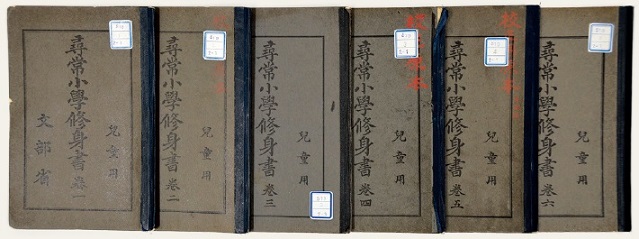 尋常小學修身書 卷一
兒童用
文部省
尋常小學修身書 卷二
兒童用
尋常小學修身書 卷三
兒童用
尋常小學修身書 卷四
兒童用
尋常小學修身書 卷五
兒童用
尋常小學修身書 卷六
兒童用